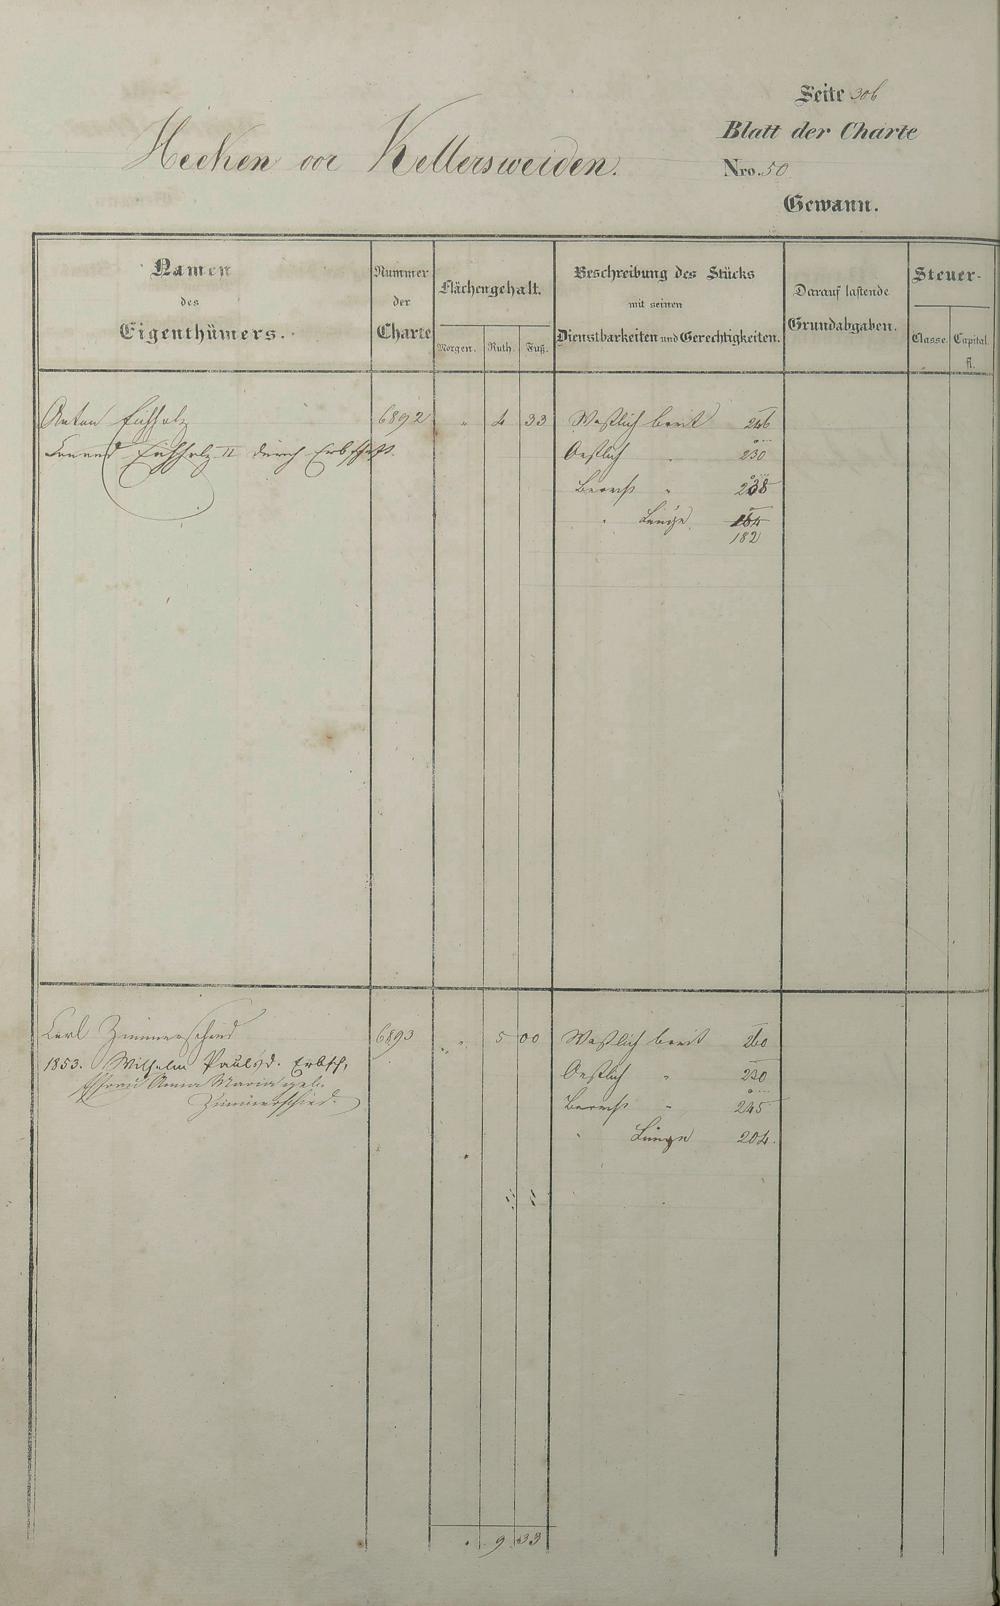 Seite 306
Blatt der Charte
Hecken vor Kellersweiden.
Nro. 50
Gewann.
Namen des Eigenthümers.
Nummer der Charte
Flächengehalt.
Morgen. Ruth. Fuß.
Beschreibung des Stücks mit seinen Dienstbarkeiten und Gerechtigkeiten.
Darauf lastende Grundabgaben.
Steuer-
Classe. Capital. fl.
Anton Eichholz 6892 " 4 33 Westlich breit 246
Eichholz II durch Erbschaft. Oestlich " 230
Berech " 238
" Länge 182
Carl Zimmerschied 6893 " 5 00 Westlich breit 260
1853. Wilhelm Paulsd. Erbsch. Oestlich " 230
Frau Anna Maria geb. Berech " 245
Zimmerschied. " Länge 204.
9 33